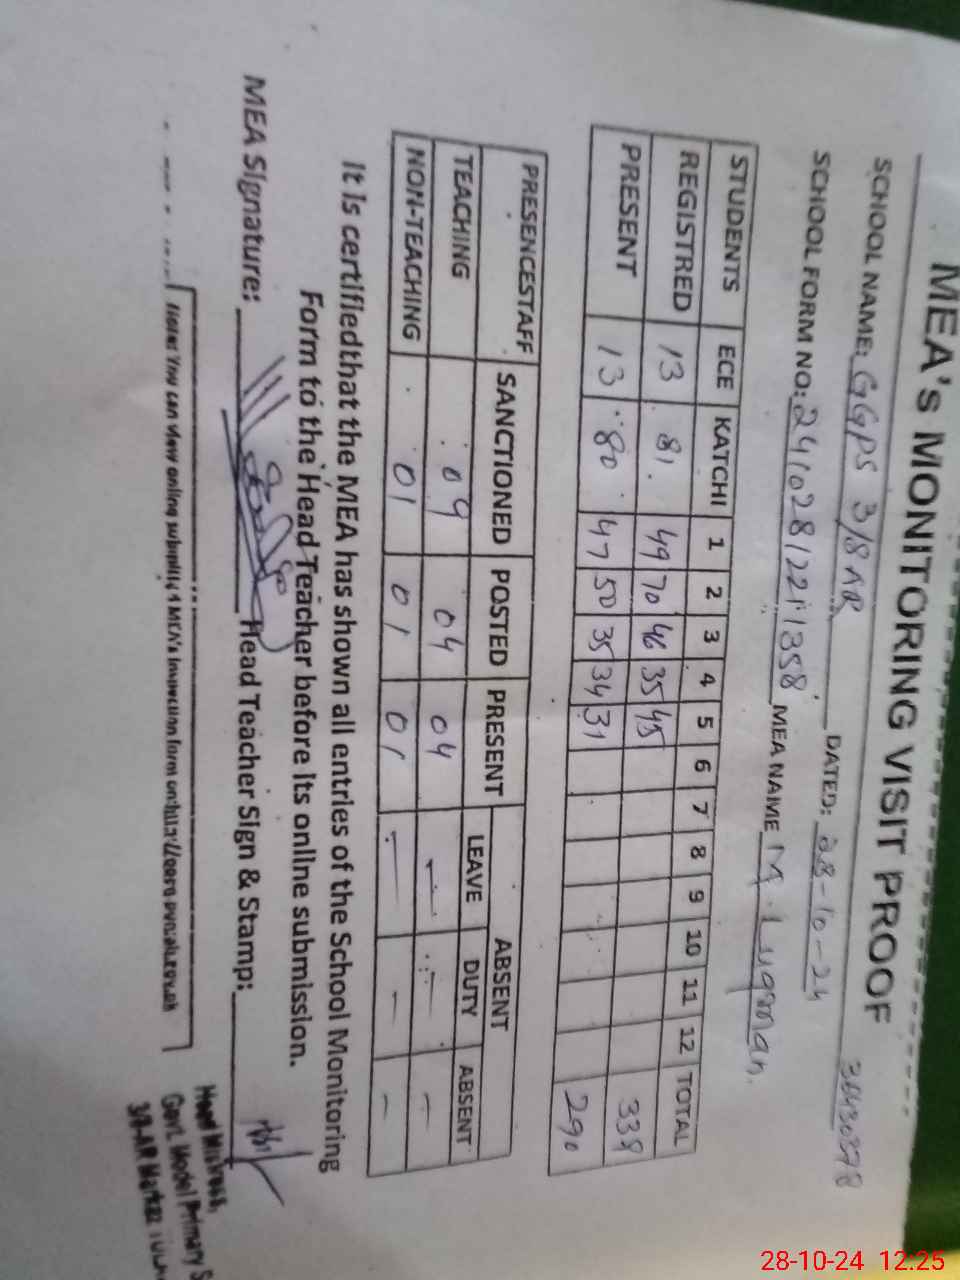 MEA's MONITORING VISIT PROOF
SCHOOL NAME: GGPS 3/8 AR DATED: 28-10-24
SCHOOL FORM NO: 24102812211358 MEA NAME M. Luqman.
STUDENTS ECE KATCHI 1 2 3 4 5 6 7 8 9 10 11 12 TOTAL
REGISTRED 13 81 49 70 46 35 45 338
PRESENT 13 80 47 50 35 34 31 290
PRESENCESTAFF SANCTIONED POSTED PRESENT ABSENT
LEAVE DUTY ABSENT
TEACHING 09 04 04 - - -
NON-TEACHING 01 01 01 - - -
It is certifiedthat the MEA has shown all entries of the School Monitoring
Form to the Head Teacher before its online submission.
MEA Signature: Head Teacher Sign & Stamp:
Note: You can view online submitted MEA's Inspection form on
Head Mistress,
Govt. Model Primary S
3/8-AR Markaz
28-10-24 12:25